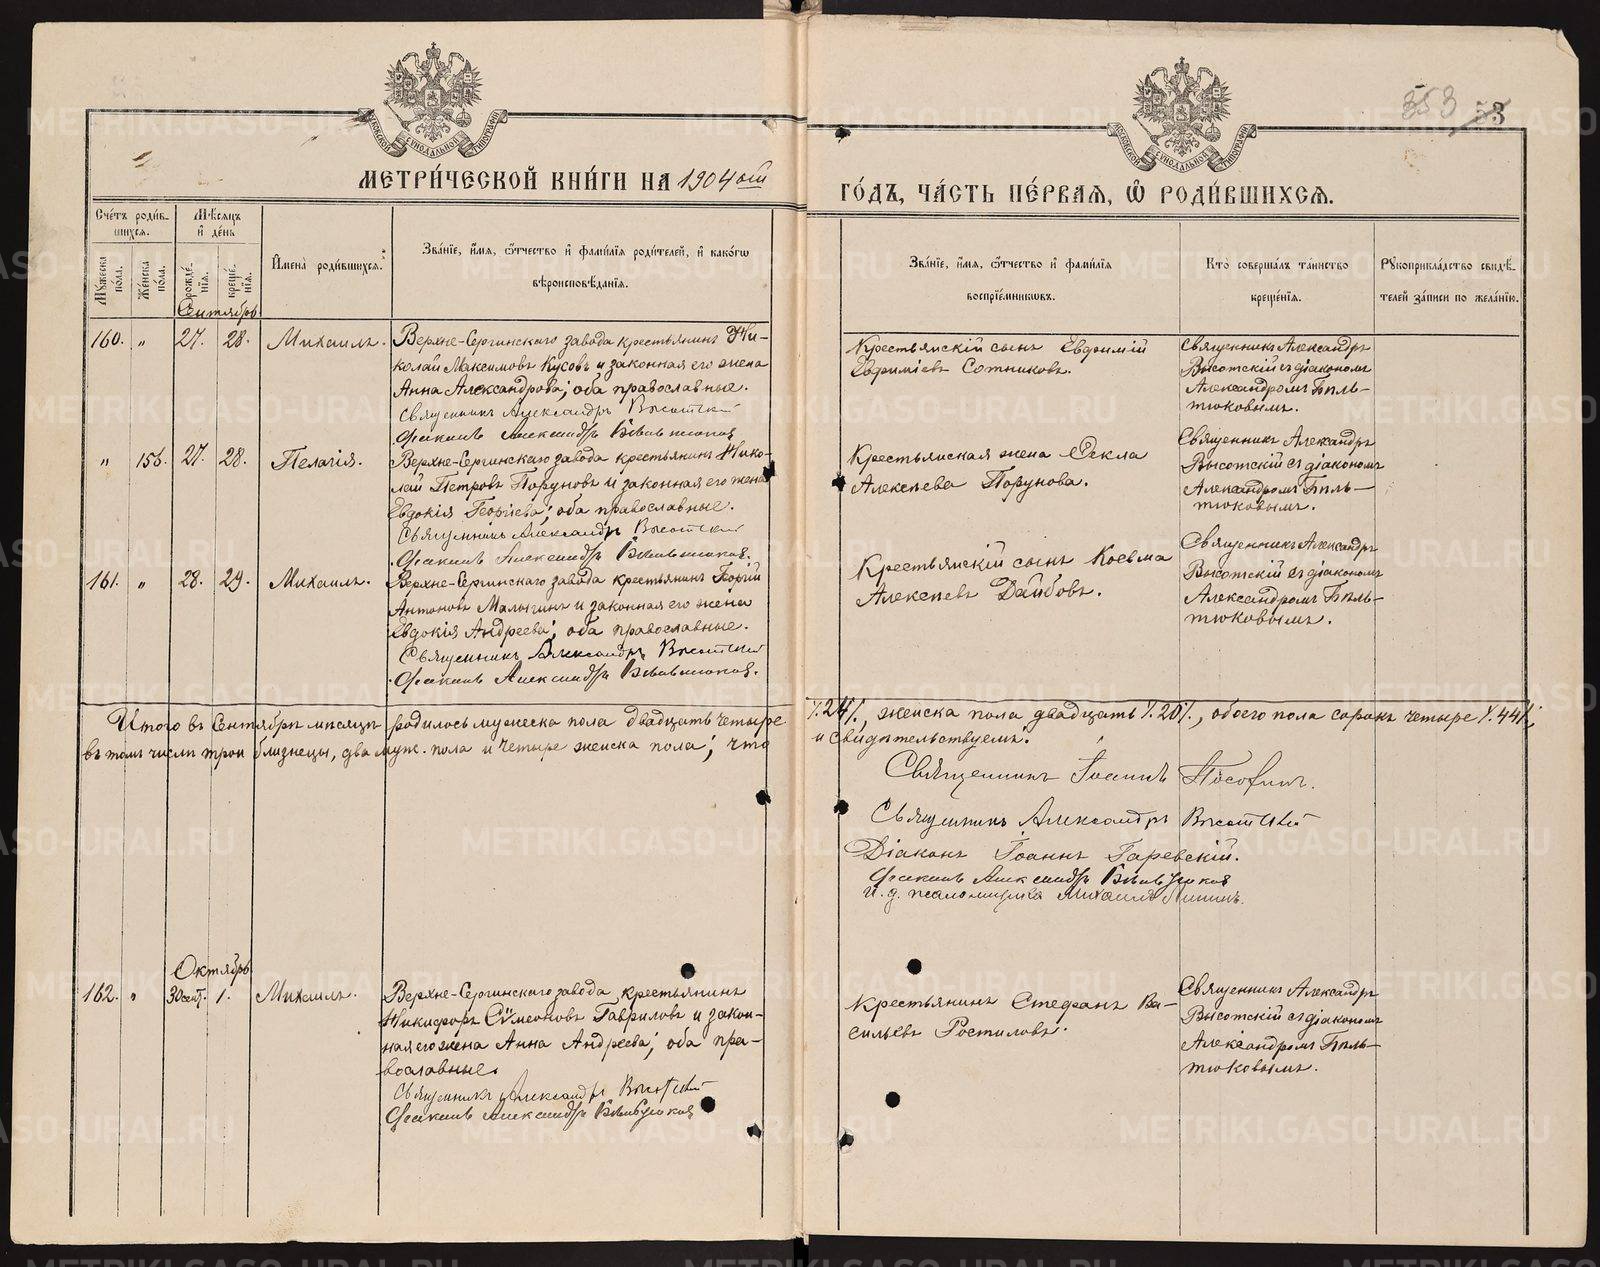 353 53
МОСКОВСКОЙ СѴНОДАЛЬНОЙ ТИПОГРАФІИ
МОСКОВСКОЙ СѴНОДАЛЬНОЙ ТИПОГРАФІИ
МЕТРИ́ЧЕСКОЙ КНИ́ГИ НА 1904ый
ГО́ДЪ, ЧА́СТЬ ПЕ́РВАЯ, Ѽ РОДИ́ВШИХСѦ.
Сче́тъ роди́в-
шихсѧ.
Мꙋ́жеска по́ла.
Же́нска по́ла.
Мѣ́сѧцъ
и҆ де́нь
рожде́-
нїѧ.
креще́-
нїѧ.
И҆мена̀ роди́вшихсѧ.
Зва́нїе, и҆́мѧ, ѻ҆́тчество и҆ фами́лїѧ роди́телей, и҆ како́гѡ
вѣроисповѣ́данїѧ.
Зва́нїе, и҆́мѧ, ѻ҆́тчество и҆ фами́лїѧ
воспрїе́мникѡвъ.
Кто̀ соверша́лъ та́инство
креще́нїѧ.
Рꙋкоприкла́дство свидѣ́-
телей за́писи по жела́нїю.
Сентябрь
160. „ 27. 28. Михаилъ.
Верхне-Сергинскаго завода крестьянинъ Ни-
колай Максимовъ Кусовъ и законная его жена
Анна Александрова; оба православные.
Священникъ Александръ Высотскій
Діаконъ Александръ
Крестьянскій сынъ Евфимій
Евфиміевъ Сотниковъ.
Священникъ Александръ
Высотскій съ діакономъ
Александромъ Бѣль-
тюковымъ.
„ 156. 27. 28. Пелагія.
Верхне-Сергинскаго завода крестьянинъ Нико-
лай Петровъ Поруновъ и законная его жена
Евдокія Георгіева; оба православные.
Священникъ Александръ Высотскій
Діаконъ Александръ
Крестьянская жена Ѳекла
Алексѣева Порунова.
Священникъ Александръ
Высотскій съ діакономъ
Александромъ Бѣль-
тюковымъ.
161. „ 28. 29. Михаилъ.
Верхне-Сергинскаго завода крестьянинъ Георгій
Антоновъ Малыгинъ и законная его жена
Евдокія Андреева; оба православные.
Священникъ Александръ Высотскій
Діаконъ Александръ
Крестьянскій сынъ Косьма
Алексѣевъ Дайбовъ.
Священникъ Александръ
Высотскій съ діакономъ
Александромъ Бѣль-
тюковымъ.
Итого въ Сентябрѣ мѣсяцѣ родилось мужеска пола двадцать четыре /.24/., женска пола двадцать /.20/., обоего пола сорокъ четыре /.44/.,
въ томъ числѣ трои близнецы, два муж. пола и четыре женска пола; что и свидѣтельствуемъ.
Священникъ Іоаннъ
Священникъ Александръ Высотскій
Діаконъ Іоаннъ Гаревскій.
Діаконъ Александръ
и. д. псаломщика Михаилъ
Октябрь
162. „ 30 сент. 1. Михаилъ.
Верхне-Сергинскаго завода крестьянинъ
Никифоръ Сѵмеоновъ Гавриловъ и закон-
ная его жена Анна Андреева; оба пра-
вославные.
Священникъ Александръ Высотскій
Діаконъ Александръ
Крестьянинъ Стефанъ Ва-
сильевъ Ростиловъ.
Священникъ Александръ
Высотскій съ діакономъ
Александромъ Бѣль-
тюковымъ.
METRIKI.GASO-URAL.RU